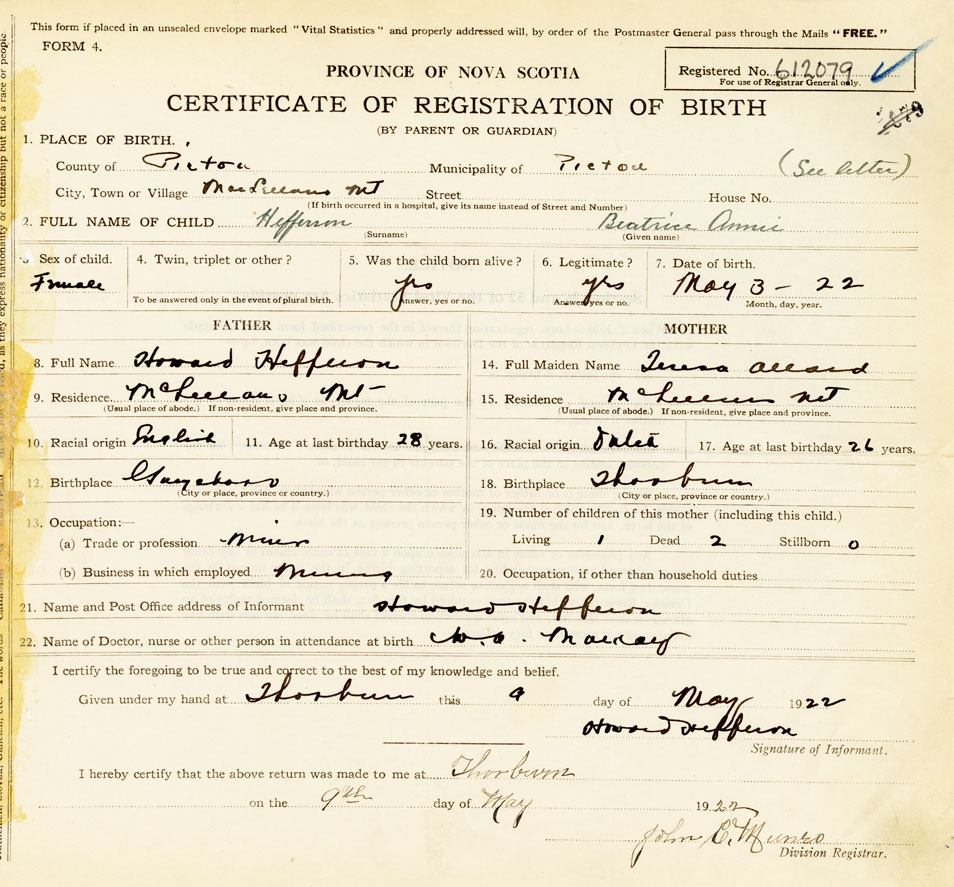 This form if placed in an unsealed envelope marked "Vital Statistics" and properly addressed will, by order of the Postmaster General pass through the Mails "FREE."
FORM 4.
PROVINCE OF NOVA SCOTIA
Registered No. 612079
For use of Registrar General only.
CERTIFICATE OF REGISTRATION OF BIRTH
(BY PARENT OR GUARDIAN)
1. PLACE OF BIRTH.
County of Pictou Municipality of Pictou (See letter)
City, Town or Village MacLellans Mt Street House No.
(If birth occurred in a hospital, give its name instead of Street and Number)
2. FULL NAME OF CHILD Hefferson Beatrice Annie
(Surname) (Given name)
3. Sex of child. 4. Twin, triplet or other? 5. Was the child born alive? 6. Legitimate? 7. Date of birth.
Female yes yes May 3 - 22
To be answered only in the event of plural birth. Answer, yes or no. Answer yes or no. Month, day, year.
FATHER MOTHER
8. Full Name Howard Hefferon 14. Full Maiden Name Teresa Allard
9. Residence McLellans Mt 15. Residence McLellans Mt
(Usual place of abode.) If non-resident, give place and province. (Usual place of abode.) If non-resident, give place and province.
10. Racial origin English 11. Age at last birthday 28 years. 16. Racial origin 17. Age at last birthday 26 years.
12. Birthplace Guysboro 18. Birthplace Thorburn
(City or place, province or country.) (City or place, province or country.)
13. Occupation:— 19. Number of children of this mother (including this child.)
(a) Trade or profession Miner Living 1 Dead 2 Stillborn 0
(b) Business in which employed Mining 20. Occupation, if other than household duties
21. Name and Post Office address of Informant Howard Hefferon
22. Name of Doctor, nurse or other person in attendance at birth
I certify the foregoing to be true and correct to the best of my knowledge and belief.
Given under my hand at Thorburn this 9 day of May 1922
Howard Hefferon
Signature of Informant.
I hereby certify that the above return was made to me at Thorburn
on the 9th day of May 1922
John C. Munro
Division Registrar.